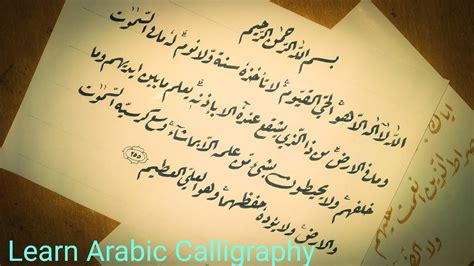 بسم الله الرحمن الرحيم
الله لا اله الا هو الحي القيوم لا تأخذه سنة ولا نوم له ما في السموت
وما في الارض من ذا الذي يشفع عنده الا باذنه يعلم ما بين ايديهم وما
خلفهم ولا يحيطون بشئ من علمه الا بما شاء وسع كرسيه السموت
والارض ولا يؤده حفظهما وهو العلي العظيم
٢٥٥
صراط الذين انعمت عليهم
Learn Arabic Calligraphy